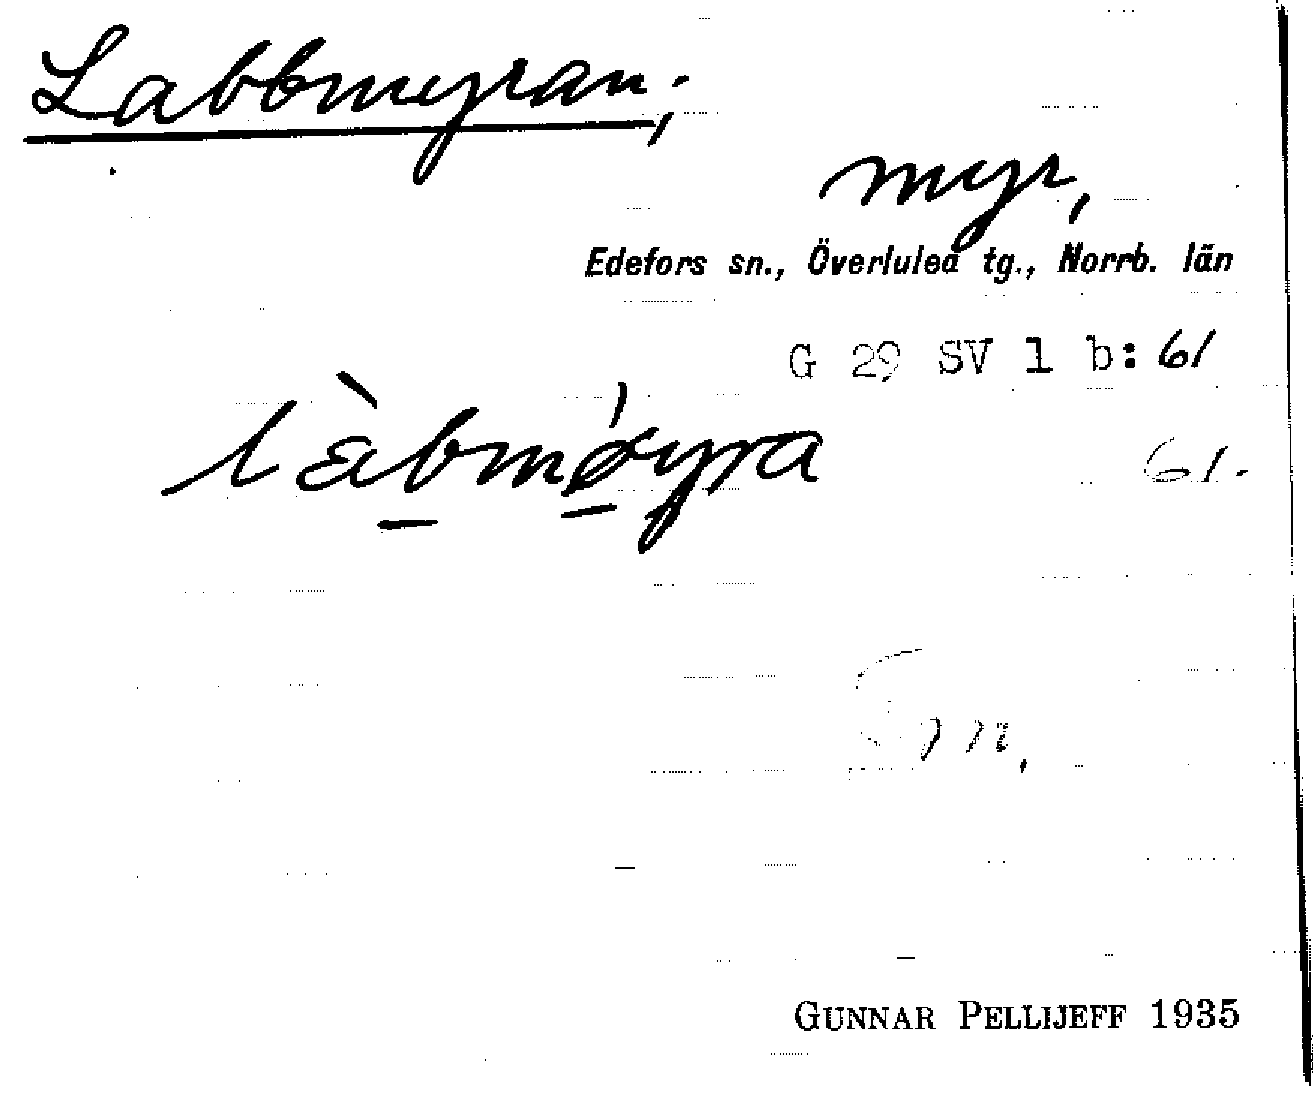 Labbmyran;
myr,
Edefors sn., Överluleå tg., Norrb. län
G 29 SV 1 b: 61
làbmǿyra
61.
GUNNAR PELLIJEFF 1935